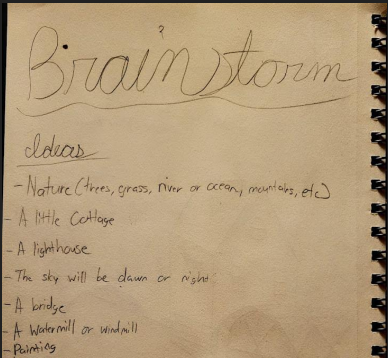 Brainstorm
Ideas
- Nature (trees, grass, river or ocean, mountains, etc)
- A little Cottage
- A lighthouse
- The sky will be dawn or night
- A bridge
- A watermill or windmill
- Painting